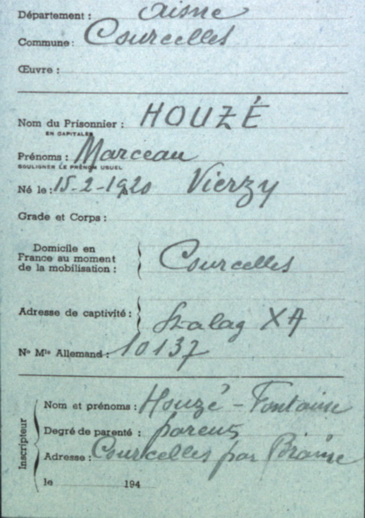 Département : Aisne
Commune : Courcelles
Œuvre :
Nom du Prisonnier : HOUZÉ
EN CAPITALES
Prénoms : Marceau
SOULIGNER LE PRÉNOM USUEL
Né le : 15-2-1920 Vierzy
Grade et Corps :
Domicile en
France au moment
de la mobilisation : Courcelles
Adresse de captivité : Stalag XA
No Mle Allemand : 10137
Inscripteur
Nom et prénoms : Houzé - Fontaine
Degré de parenté : parents
Adresse : Courcelles par Braine
le 194